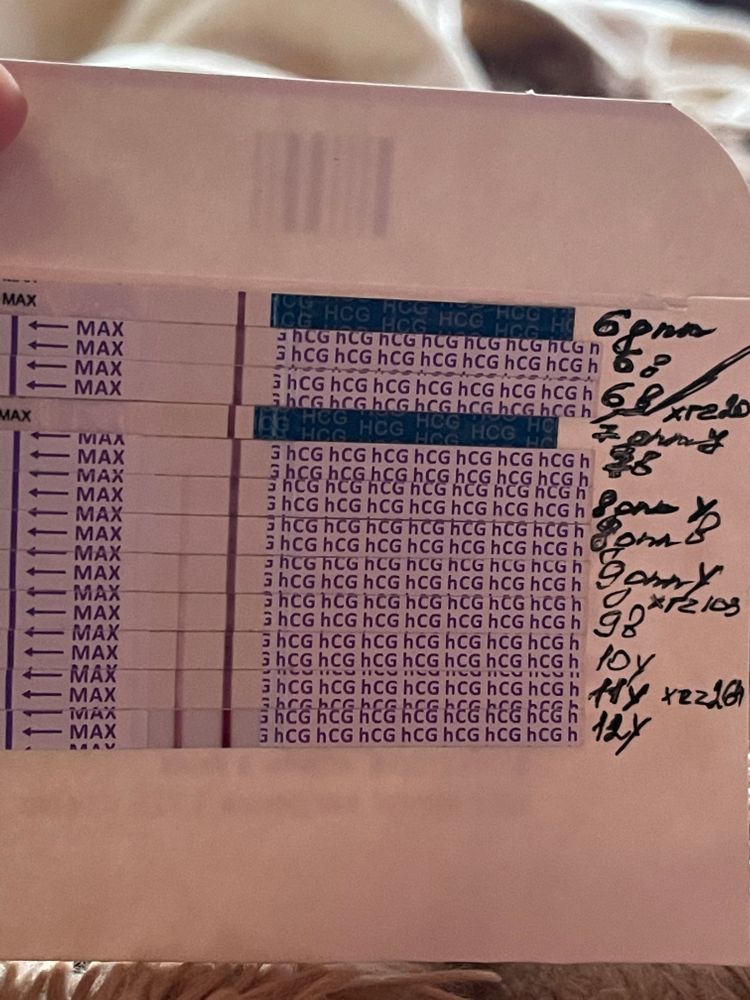 MAX
HCG HCG HCG HCG
HCG HCG HCG HCG
6 дпп
← MAX
hCG hCG hCG hCG hCG hCG hCG h
← MAX
hCG hCG hCG hCG hCG hCG hCG h
6в
← MAX
hCG hCG hCG hCG hCG hCG hCG h
← MAX
hCG hCG hCG hCG hCG hCG hCG h
6в
MAX
HCG HCG HCG HCG
7 дпп у
← MAX
hCG hCG hCG hCG hCG hCG hCG h
7в
← MAX
hCG hCG hCG hCG hCG hCG hCG h
← MAX
hCG hCG hCG hCG hCG hCG hCG h
← MAX
hCG hCG hCG hCG hCG hCG hCG h
8дпп у
← MAX
hCG hCG hCG hCG hCG hCG hCG h
8дпп в
← MAX
hCG hCG hCG hCG hCG hCG hCG h
← MAX
hCG hCG hCG hCG hCG hCG hCG h
9дпп у
← MAX
hCG hCG hCG hCG hCG hCG hCG h
← MAX
hCG hCG hCG hCG hCG hCG hCG h
9в
← MAX
hCG hCG hCG hCG hCG hCG hCG h
← MAX
hCG hCG hCG hCG hCG hCG hCG h
10у
← MAX
hCG hCG hCG hCG hCG hCG hCG h
11у
← MAX
hCG hCG hCG hCG hCG hCG hCG h
← MAX
hCG hCG hCG hCG hCG hCG hCG h
12у